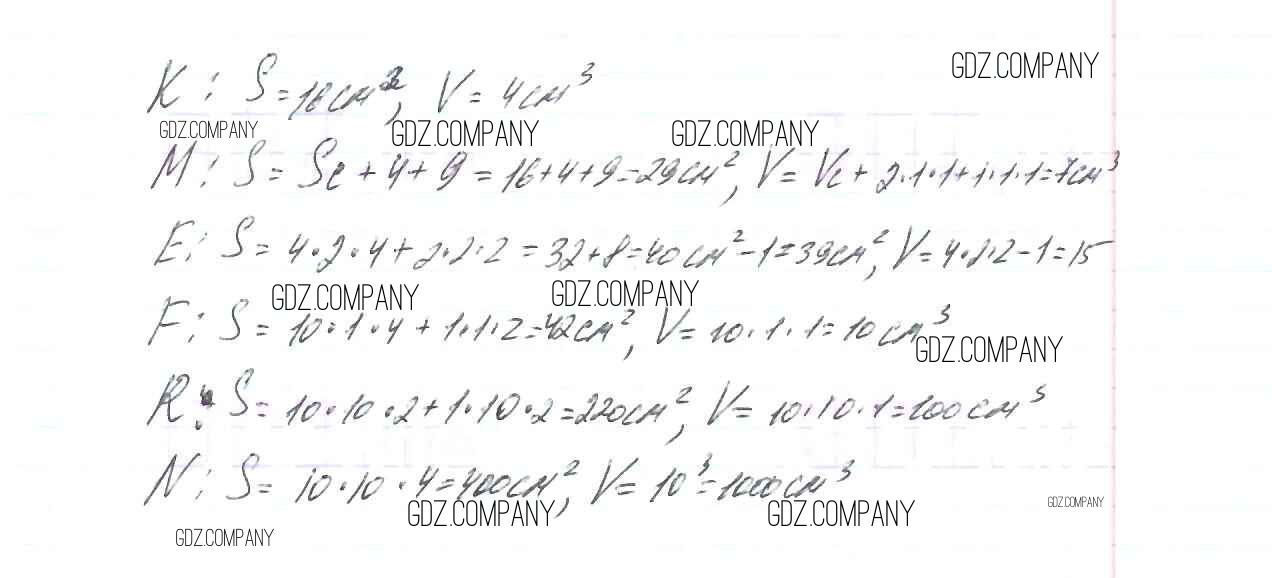 GDZ.COMPANY
K: S = 16см², V = 4см³
GDZ.COMPANY GDZ.COMPANY GDZ.COMPANY
M: S = Sк + 4 + 9 = 16+4+9=29см², V = Vк + 2·1·1+1·1·1=7см³
E: S = 4·2·4 + 2·2·2 = 32+8=40см²-1=39см², V=4·2·2-1=15
GDZ.COMPANY GDZ.COMPANY
F: S = 10·1·4 + 1·1·2=42см², V= 10·1·1=10см³
GDZ.COMPANY
R: S= 10·10·2+1·10·2=220см², V= 10·10·1=100см³
N: S= 10·10·4=400см², V= 10³=1000см³
GDZ.COMPANY GDZ.COMPANY GDZ.COMPANY
GDZ.COMPANY